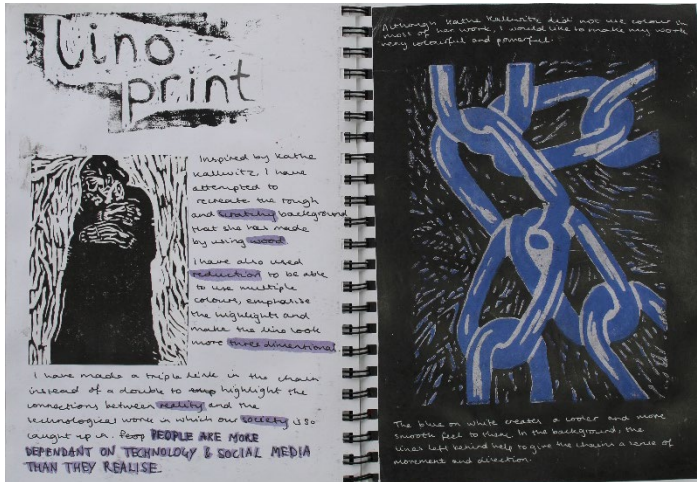 Lino
print
Inspired by Kathe
Kallwitz I have
attempted to
recreate the rough
and scratchy background
that she has made
by using wood.
I have also used
reduction to be able
to use multiple
colours, emphasise
the highlights and
make the lino look
more three dimentional.
I have made a triple link in the chain
instead of a double to highlight the
connections between reality and the
technological work in which our society is so
caught up in. Peop PEOPLE ARE MORE
DEPENDANT ON TECHNOLOGY & SOCIAL MEDIA
THAN THEY REALISE.
Although Kathe Kallwitz did not use colour in
most of her work, I would like to make my work
very colourful and powerful.
The blue on white creates a cooler and more
smooth feel to them. In the background, the
lines left behind help to give the chains a sense of
movement and direction.